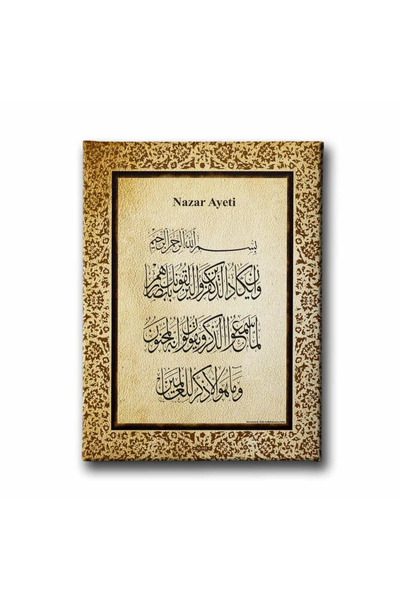 Nazar Ayeti
بسم الله الرحمن الرحيم
وان يكاد الذين كفروا ليزلقونك بابصارهم
لما سمعوا الذكر ويقولون انه لمجنون
وما هو الا ذكر للعالمين